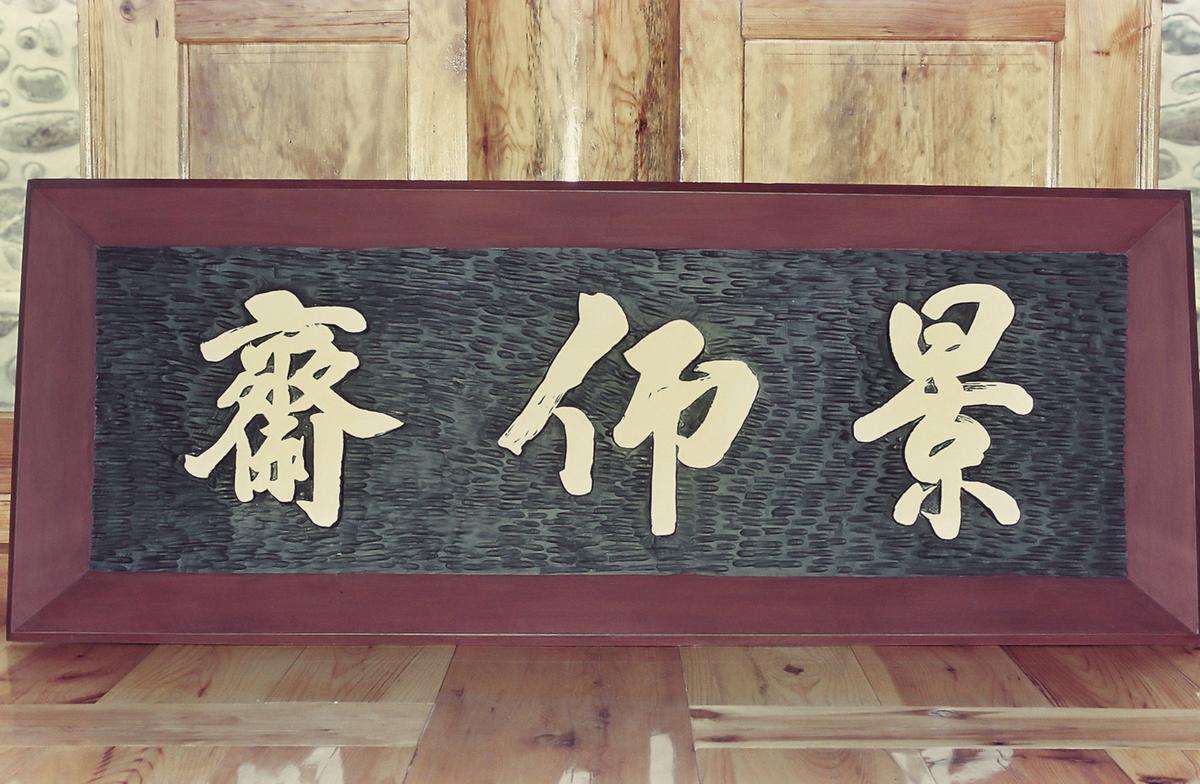 景仰齋